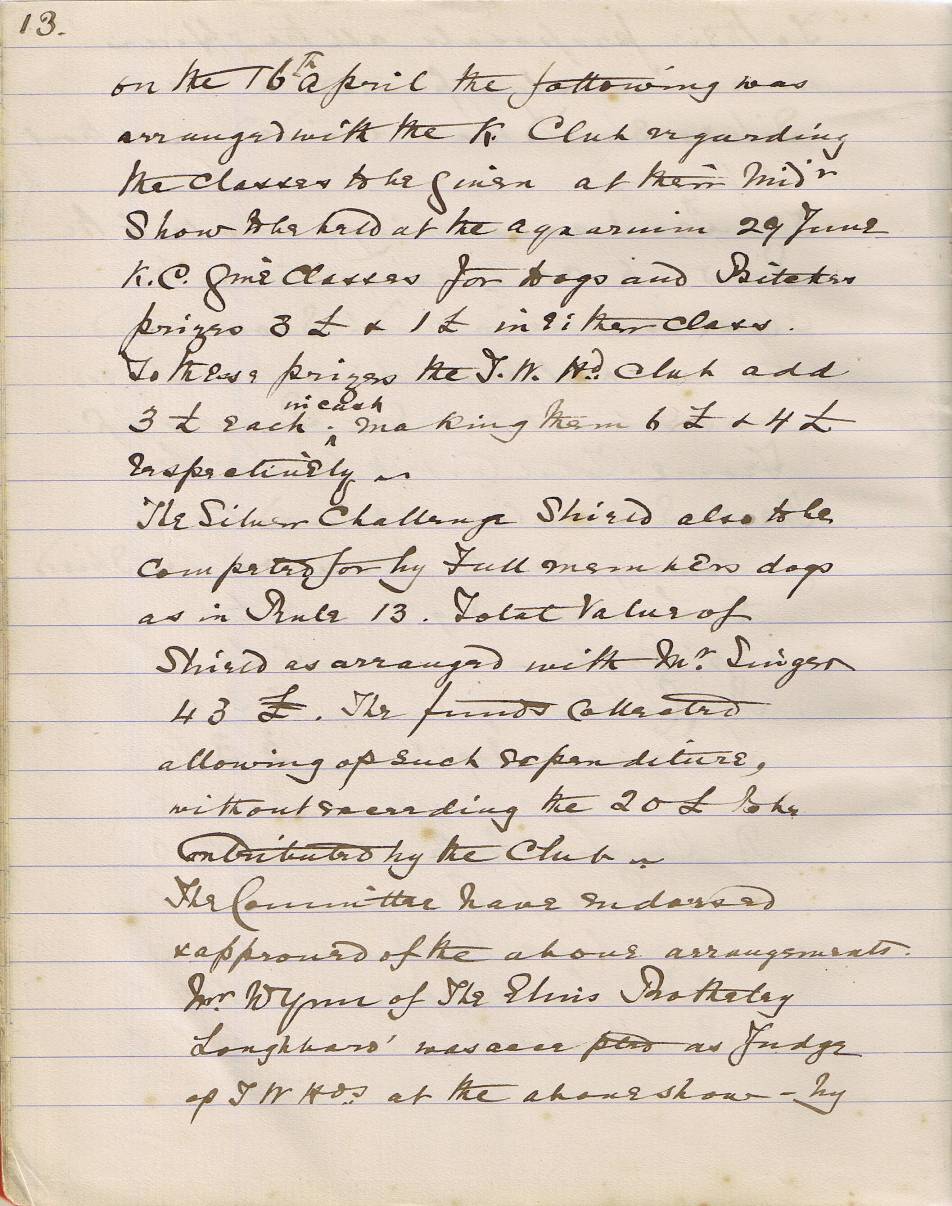 13.
on the 16th April the following was
arranged with the K. Club regarding
the classes to be given at their Midr
Show to be held at the Aquarium 29 June
K.C. give Classes for Dogs and Bitches
prizes 3 £ & 1 £ in Either Class.
To these prizes the I.W.Hd. Club add
3 £ each in cash making them 6 £ & 4 £
Respectively ~
The Silver Challenge Shield also to be
competed for by Full members dogs
as in Rule 13. Total Value of
Shield as arranged with Mr. Singer
43 £. The funds collected
allowing of such Expenditure,
without exceeding the 20 £ to be
Contributed by the Club ~
The Committee have endorsed
& approved of the above arrangements.
Mr. Wynn of The Elms Rotheley
Loughboro' was accepted as Judge
of I W Hds at the above show - by